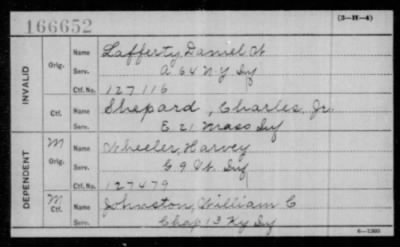 166652
(3-H-4)
INVALID
Orig.
Name Lafferty, Daniel W
Serv. A 64 N Y Inf
Ctf. No. 127116
Ctf.
Name Shepard, Charles, Jr.
Serv. E. 21 Mass Inf
DEPENDENT
M
Orig.
Name Wheeler, Harvey
Serv. G. 9 Vt. Inf
Ctf. No. 127479
M
Ctf.
Name Johnston, William C
Serv. Chap 13 Ky Inf